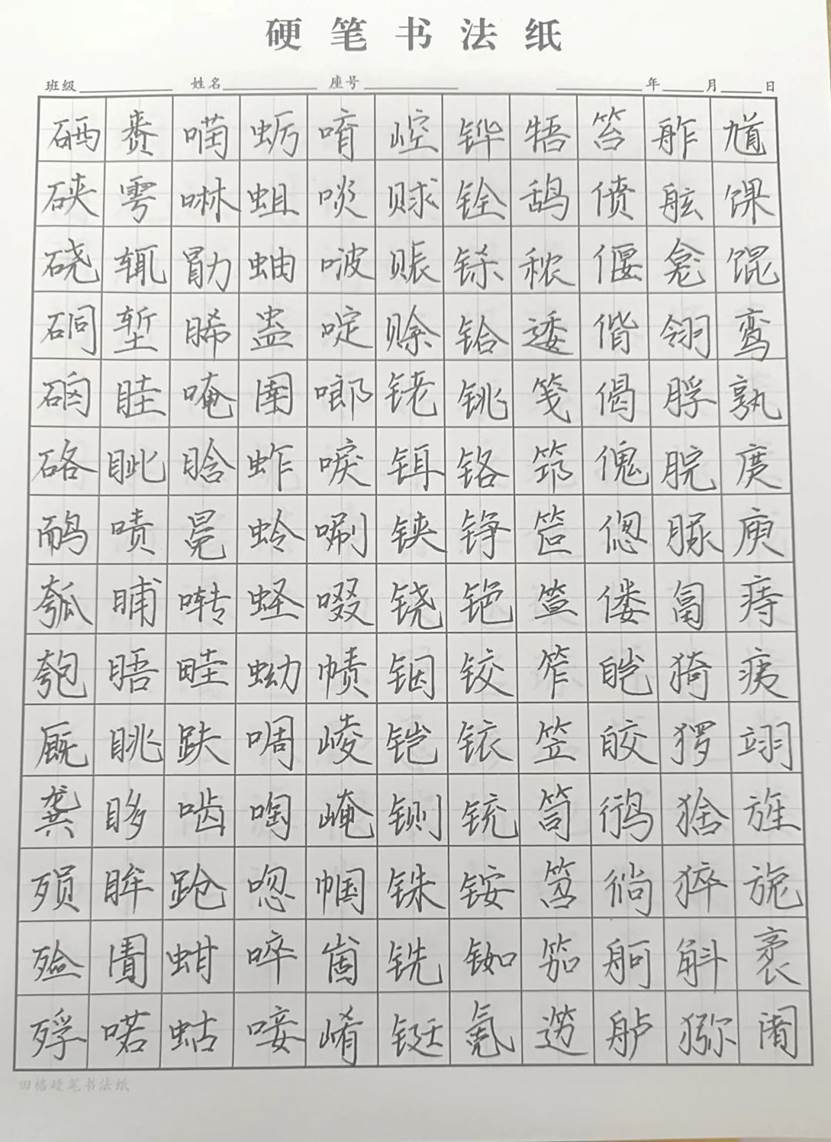 硬笔书法纸
班级 姓名 座号 年 月 日
硒赉喵蛎唷崆铧牾笞舴馗
硖雩啉蛆啖赇铨鸹偾舷馃
硗辄勖蚰啵赈铩秾偃龛馄
硐堑晞蛊啶赊铪逶偕翎鸾
硇眭唵圉啷铑铫笺偈脬孰
硌眦晗蚱唳铒铬筇傀脘庹
鸸啧冕蛉唰铗铮笸偬脲庾
瓠晡啭蛏啜铙铯笪偻匐痔
匏晤畦蚴帻铟铰笮皑猗痍
厩眺趺啁崚铠铱笠皎猡翊
龚眵啮啕崦铡铳笥鸻猞旌
殒眸跄唿帼铢铵笤徜猝旎
殓圊蚶啐崮铣铷笳舸斛袤
殍喏蛄唼崤铤氪笾舻猕阇
田格硬笔书法纸